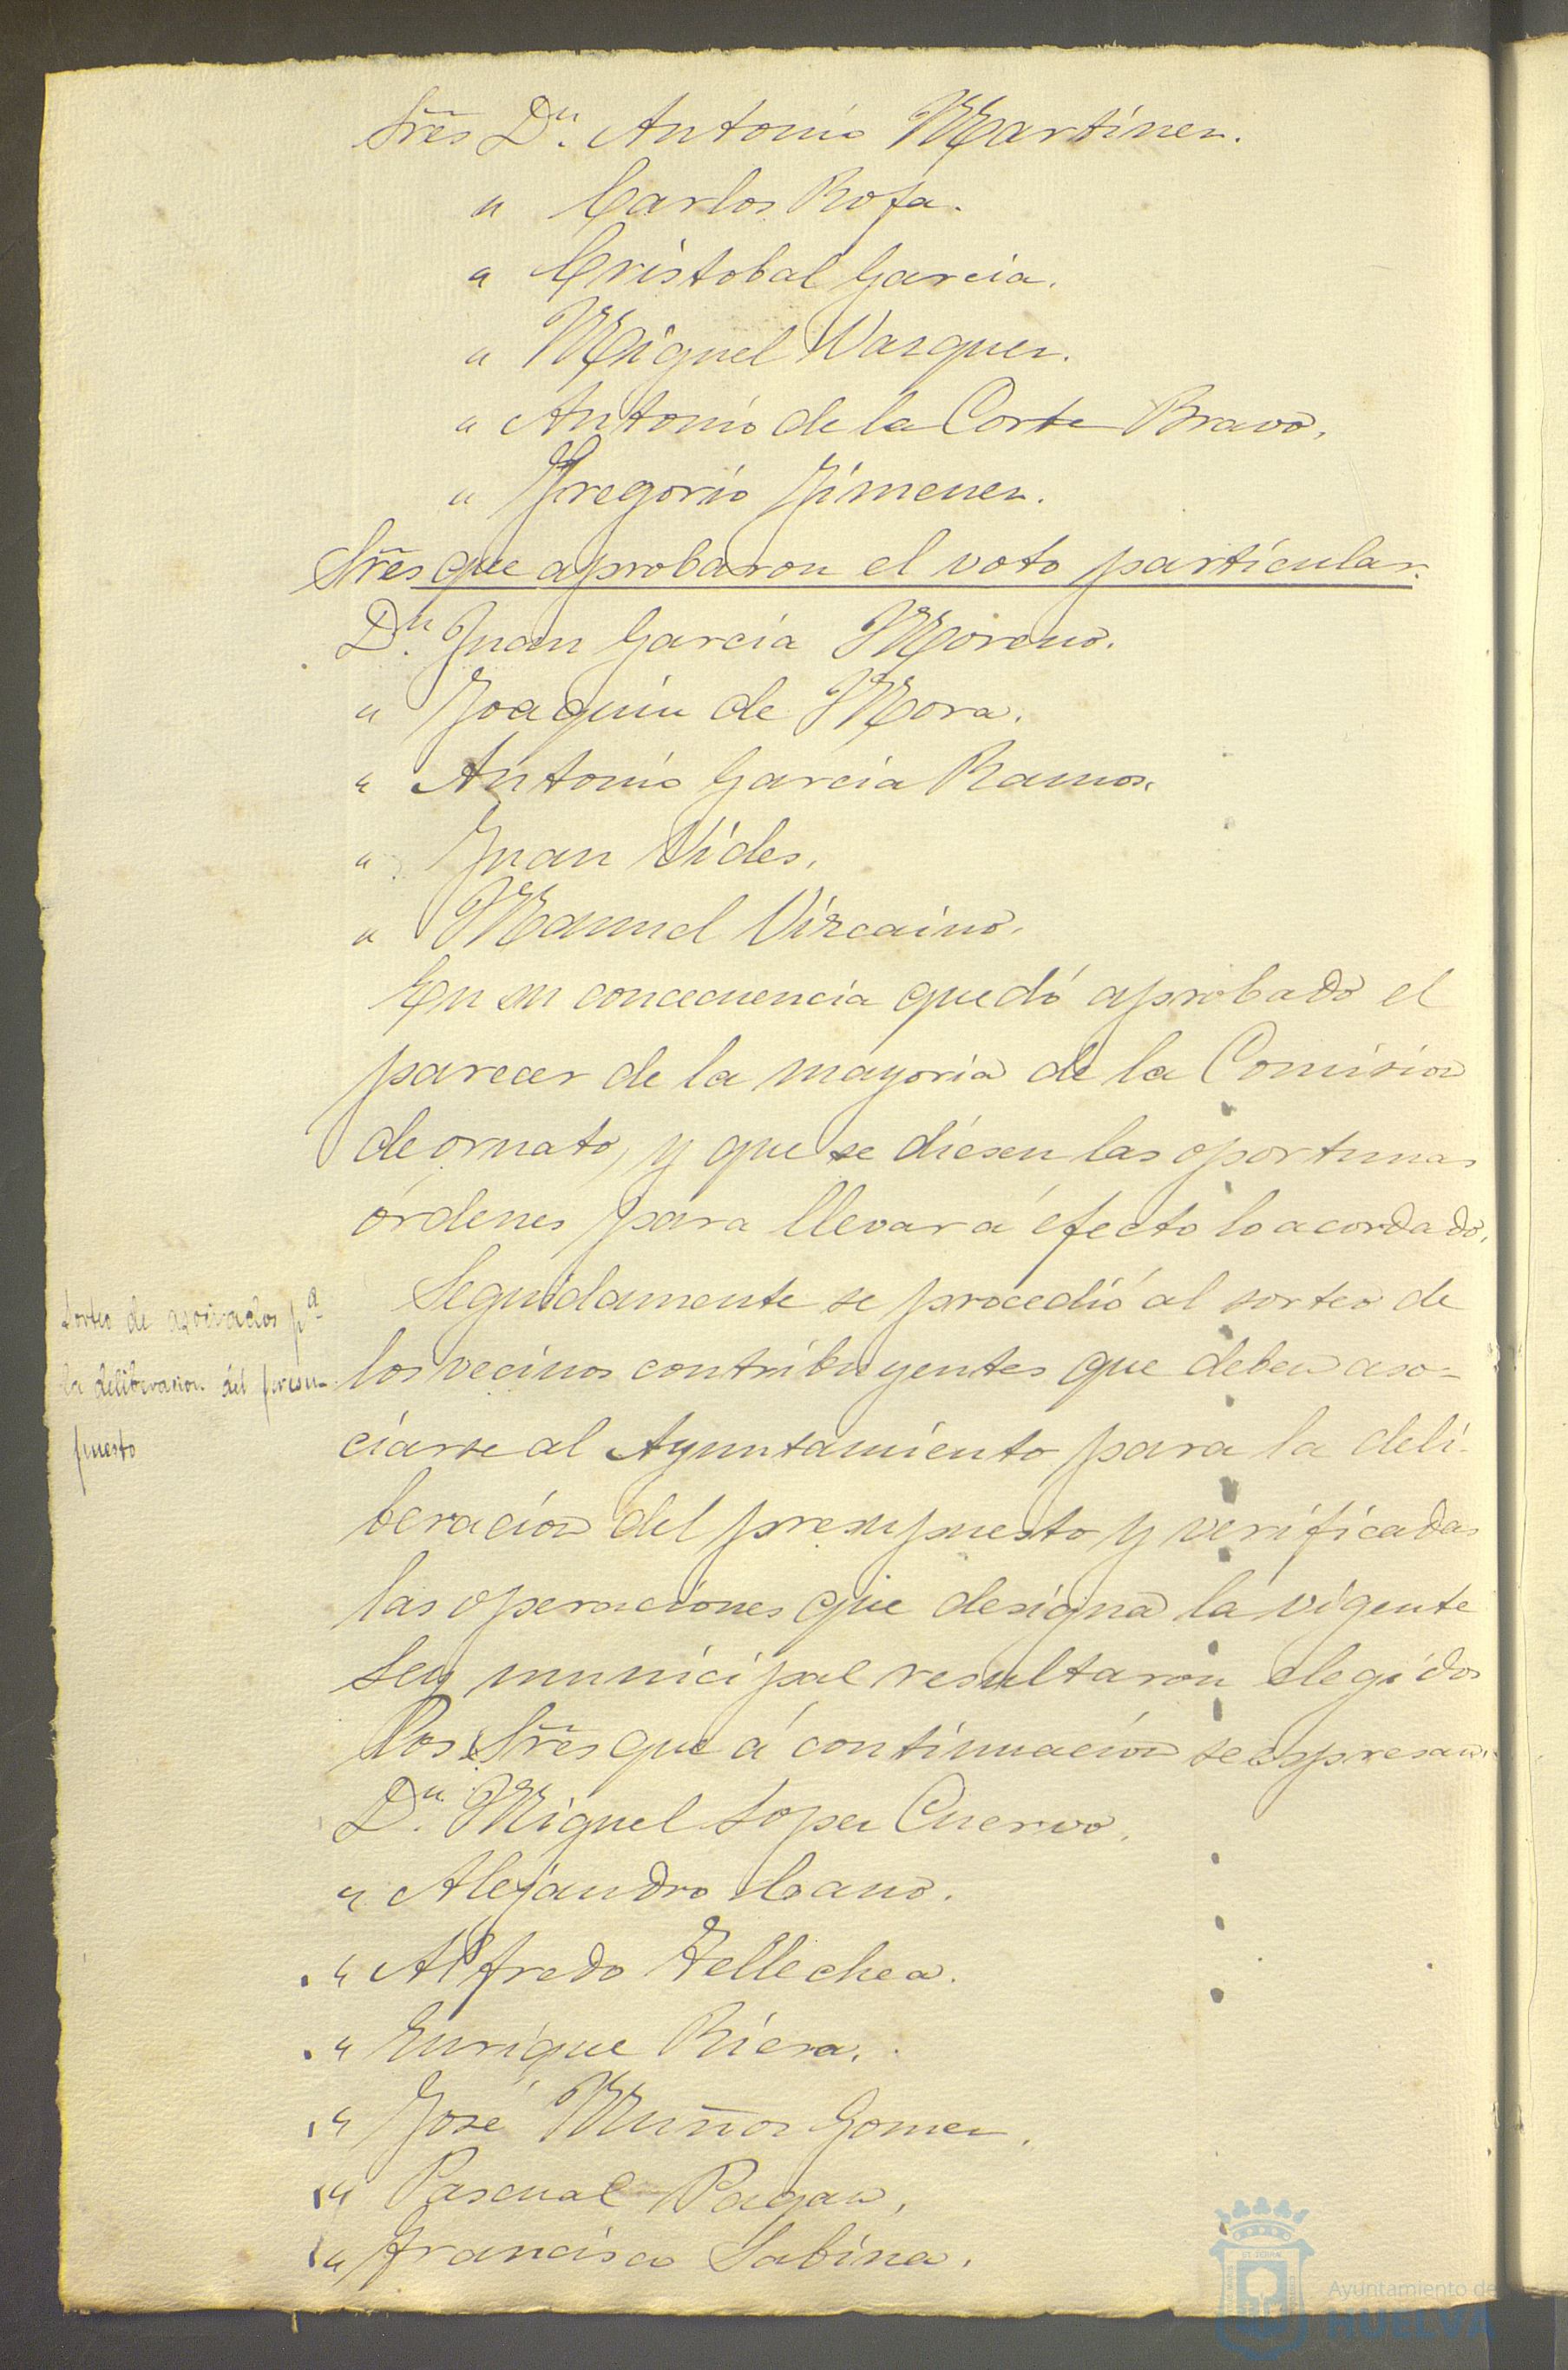 Sr̃es Dn. Antonio Martinez.
" Carlos Rofa.
" Cristobal Garcia.
" Miguel Vazquez.
" Antonio de la Corte Bravo.
" Gregorio Jimenez.
Sr̃es que aprobaron el voto particular.
Dn. Juan Garcia Moreno.
" Joaquin de Mora.
" Antonio Garcia Ramos.
" Juan Vides.
" Manuel Vizcaino.
En su concecuencia quedó aprobado el
parecer de la mayoria de la Comision
de ornato, y que se diesen las oportunas
órdenes para llevar á efecto lo acordado.
Sorteo de asociados pa
la deliberacion del presu-
puesto
Seguidamente se procedió al sorteo de
los vecinos contribuyentes que deben aso-
ciarse al Ayuntamiento para la deli-
beración del presupuesto y verificadas
las operaciones que designa la vigente
Ley municipal resultaron elegidos
los Sr̃es que á continuación se espresan.
Dn. Miguel Lopez Cuervo.
" Alejandro Cano.
" Alfredo Tellechea.
" Enrique Riera.
" José Muñoz Gomez.
" Pascual Pagan.
" Francisco Sabina.
Ayuntamiento de
HUELVA